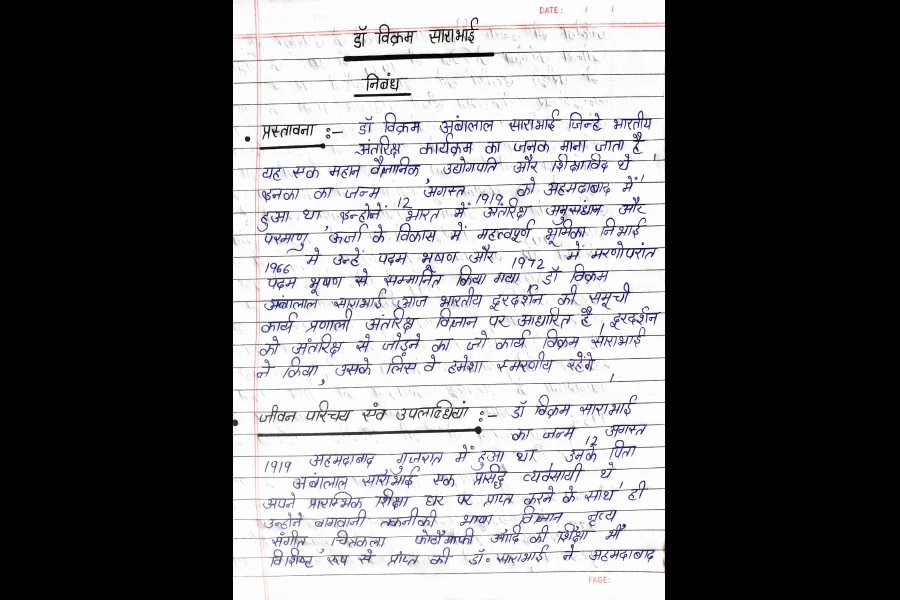 DATE: / /
डॉ विक्रम साराभाई
निबंध
प्रस्तावना :- डॉ विक्रम अंबालाल साराभाई जिन्हे भारतीय
अंतरिक्ष कार्यक्रम का जनक माना जाता है
यह एक महान वैज्ञानिक, उद्योगपति और शिक्षाविद थे।
इनका का जन्म 12 अगस्त 1919 को अहमदाबाद में
हुआ था इन्होनें भारत में अंतरिक्ष अनुसंधान और
परमाणु ऊर्जा के विकास में महत्वपूर्ण भूमिका निभाई
1966 में उन्हें पदम भूषण और 1972 में मरणोपरांत
पदम भूषण से सम्मानित किया गया, डॉ विक्रम
अंबालाल साराभाई आज भारतीय दूरदर्शन की समूची
कार्य प्रणाली अंतरिक्ष विज्ञान पर आधारित है, दूरदर्शन
को अंतरिक्ष से जोड़ने का जो कार्य विक्रम साराभाई
ने किया, उसके लिए वे हमेशा स्मरणीय रहेगे।
जीवन परिचय एंव उपलब्धियां :- डॉ विक्रम साराभाई
का जन्म 12 अगस्त
1919 अहमदाबाद गुजरात में हुआ था उनके पिता
अंबालाल साराभाई एक प्रसिद्द व्यवसायी थे,
अपने प्रारम्भिक शिक्षा घर पर प्राप्त करने के साथ ही
उन्होने बागवानी तकनीकी भाषा विज्ञान नृत्य
संगीत चित्रकला फोटोग्राफी आदि की शिक्षा भी
विशिष्ट रूप से प्राप्त की डॉ. साराभाई ने अहमदाबाद
PAGE: